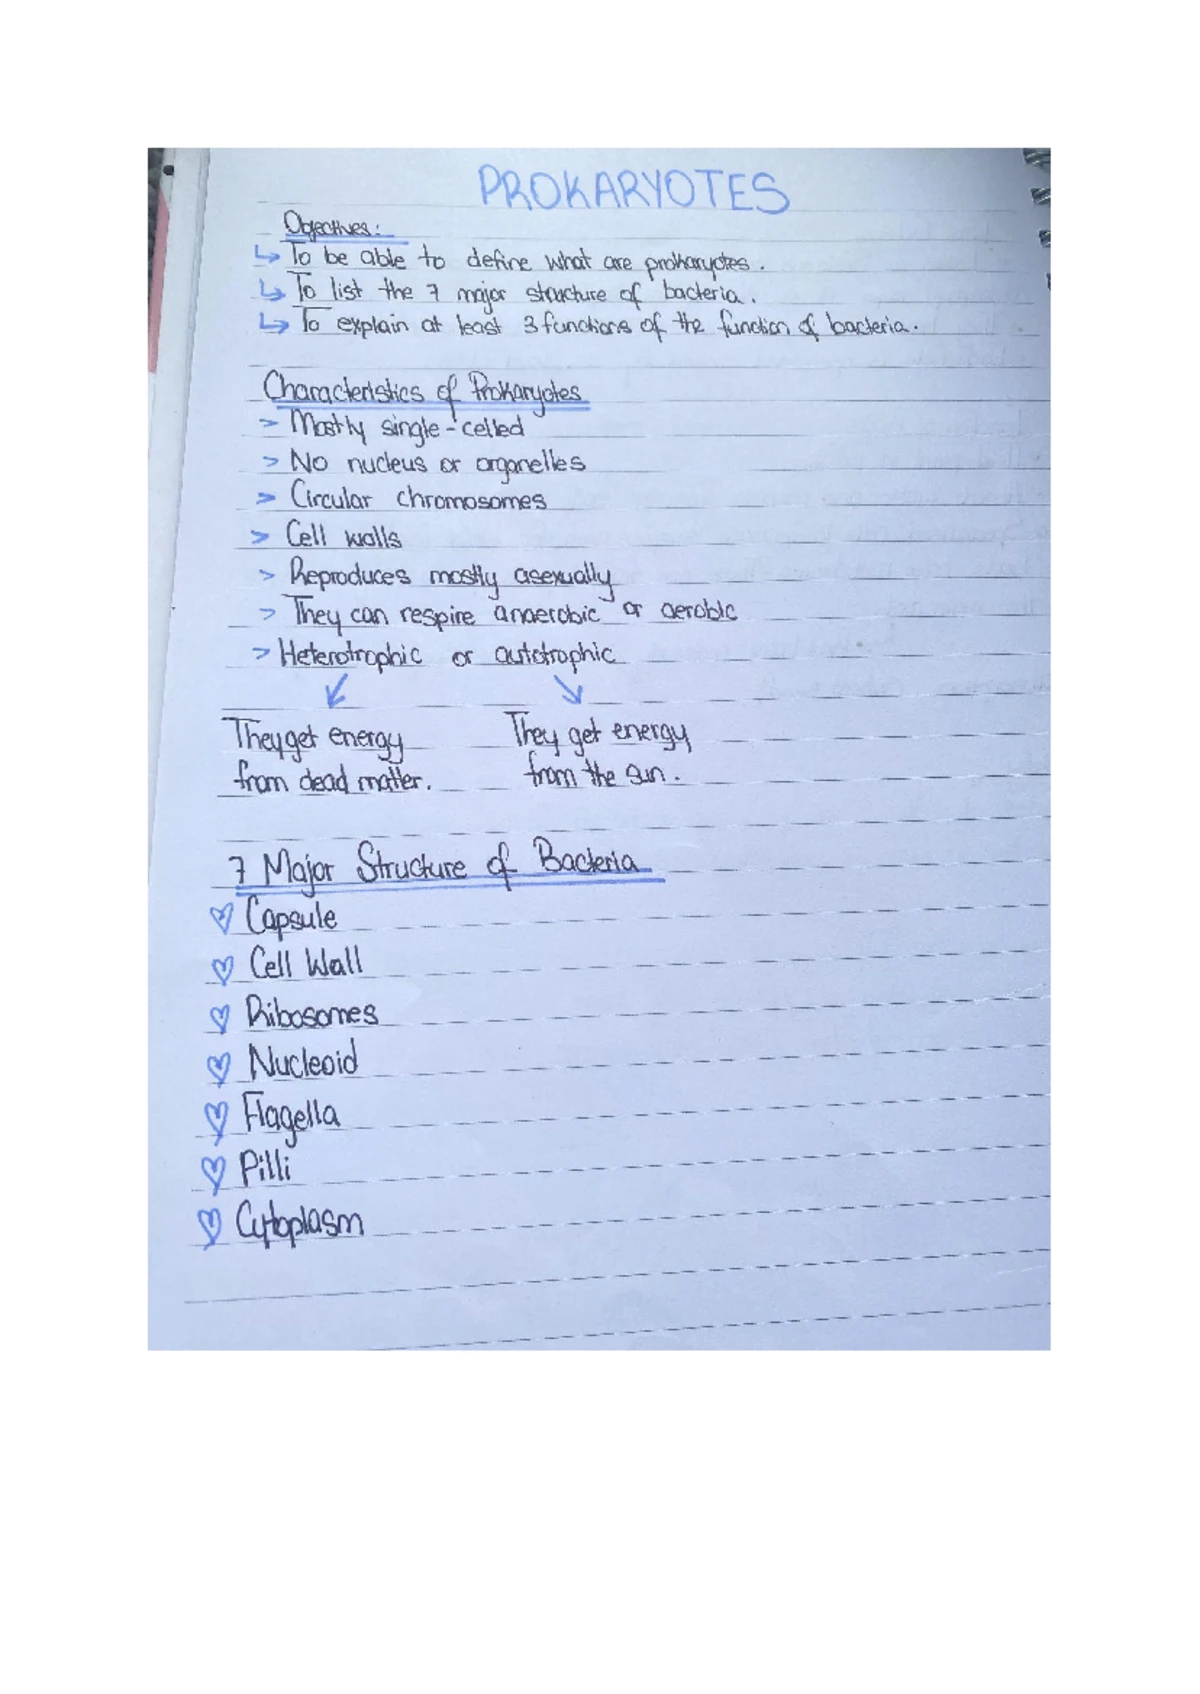 PROKARYOTES
Ojectives:
↳ To be able to define what are prokaryotes.
↳ To list the 7 major structure of bacteria.
↳ To explain at least 3 functions of the function of bacteria.
Characteristics of Prokaryotes
> Mostly single-celled
> No nucleus or organelles
> Circular chromosomes
> Cell walls
> Reproduces mostly asexually
> They can respire anaerobic or aerobic
> Heterotrophic or autotrophic
They get energy from dead matter.
They get energy from the sun.
7 Major Structure of Bacteria
♡ Capsule
♡ Cell Wall
♡ Ribosomes
♡ Nucleoid
♡ Flagella
♡ Pilli
♡ Cytoplasm